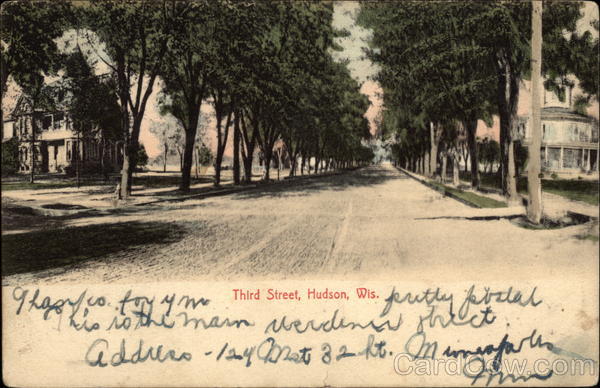 Third Street, Hudson, Wis.
Thanks for yr pretty postal
This is the main residence street
Address - 124 West 32 St. Minneapolis
Minn
CardCow.com